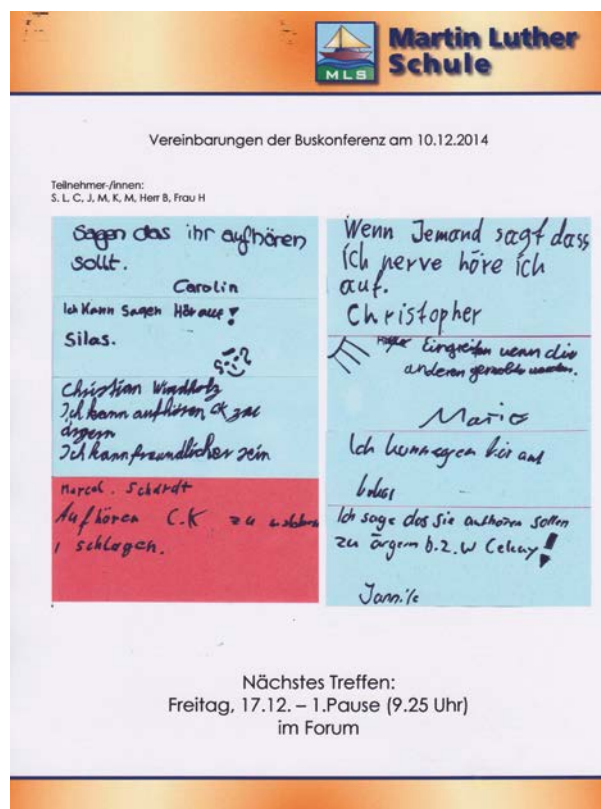 MLS
Martin Luther
Schule
Vereinbarungen der Buskonferenz am 10.12.2014
Teilnehmer-/innen:
S, L, C, J, M, K, M, Herr B, Frau H
Sagen das ihr aufhören
sollt.
Carolin
Ich kann sagen Hör auf!
Silas.
Christian
Ich kann aufhören CK zu
ärgern
Ich kann freundlicher sein
Marcel. Schardt
Aufhören C.K zu
schlagen.
Wenn Jemand sagt dass
ich nerve höre ich
auf.
Christopher
Eingreifen wenn die
anderen werden.
Mario
Ich auf
Ich sage das sie aufhören sollen
zu ärgern b.z.w
Nächstes Treffen:
Freitag, 17.12. – 1.Pause (9.25 Uhr)
im Forum